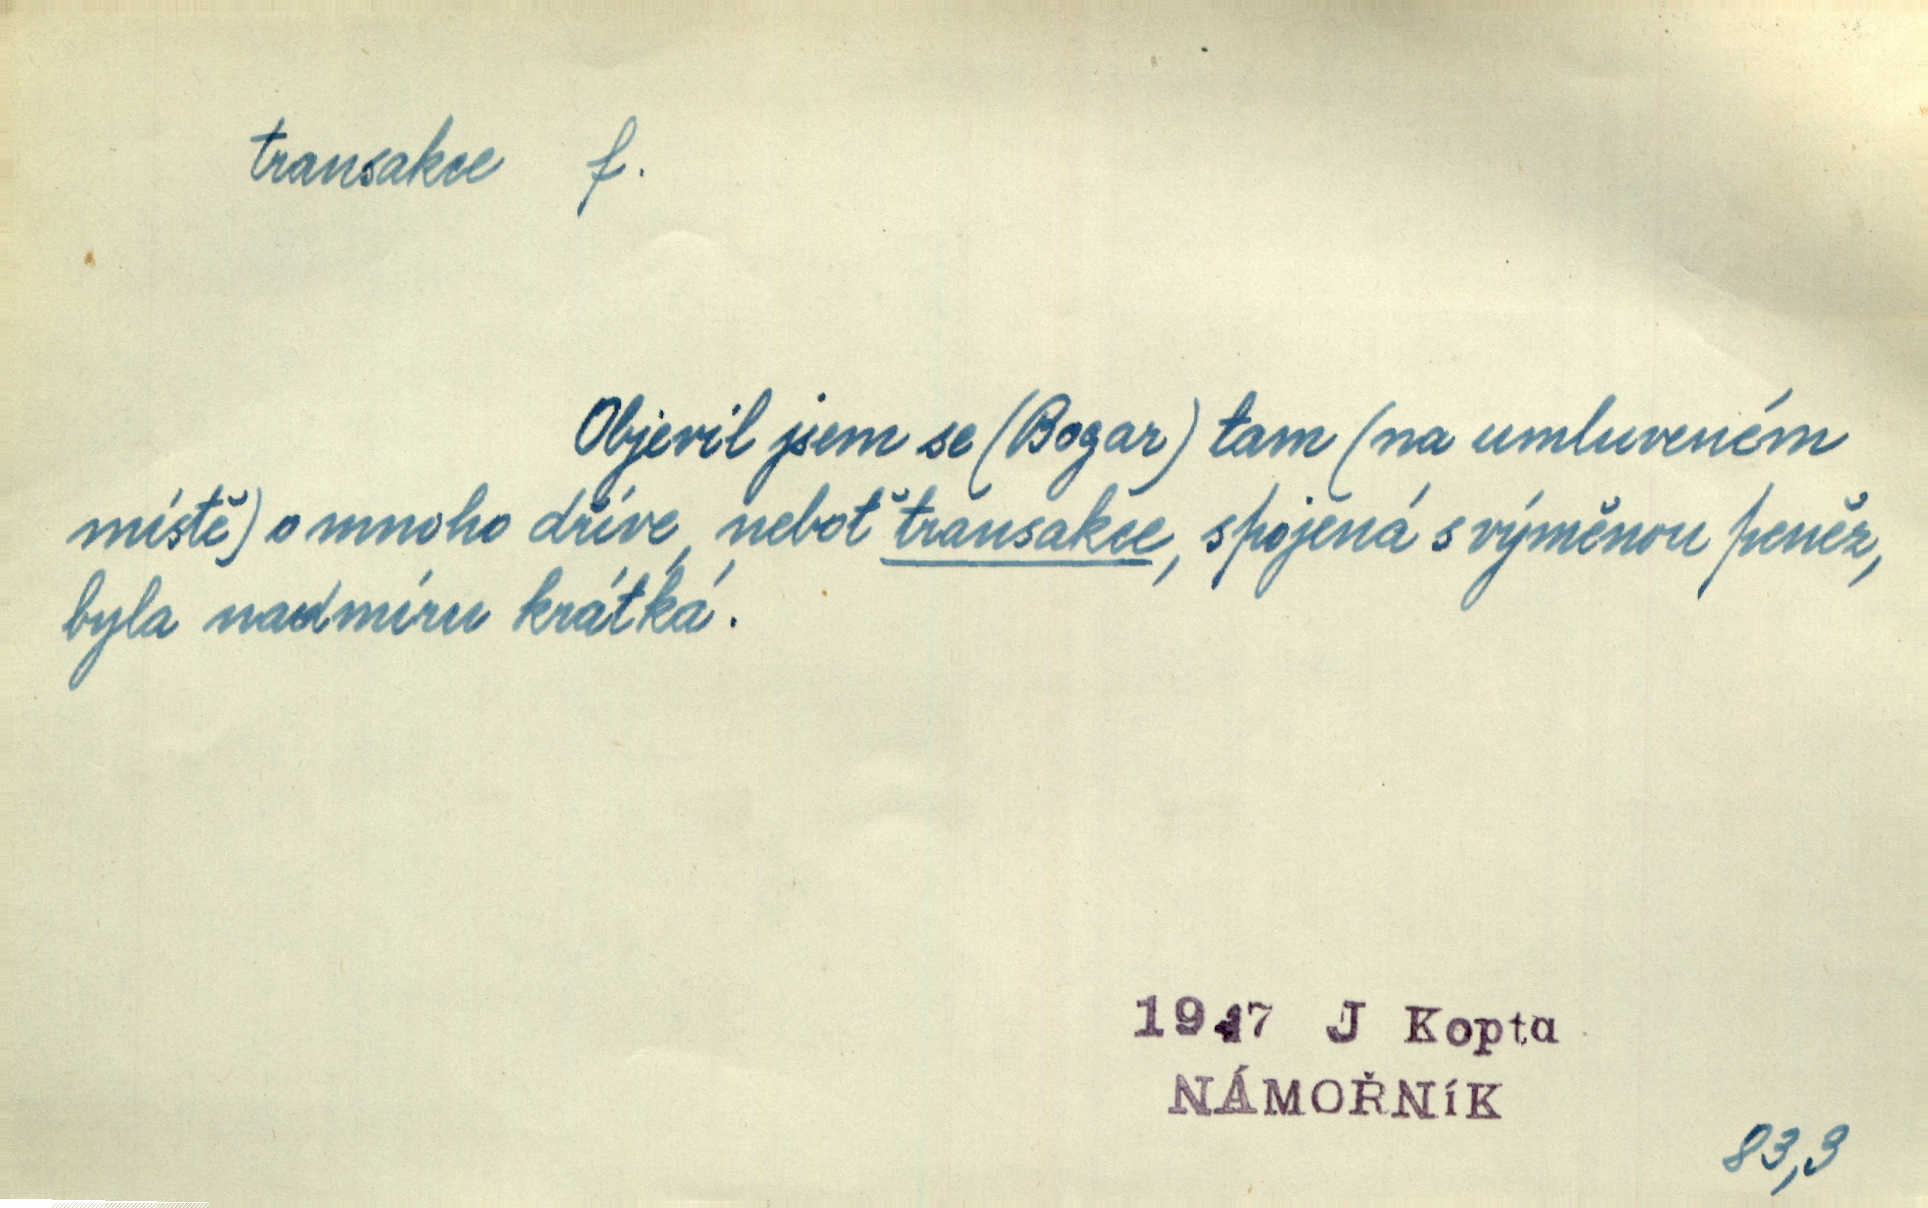 transakce f.
Objevil jsem se (Bogar) tam (na umluveném
místě) o mnoho dříve, neboť transakce, spojená s výměnou peněz,
byla nadmíru krátká.
1947 J Kopta
NÁMOŘNíK
83,3